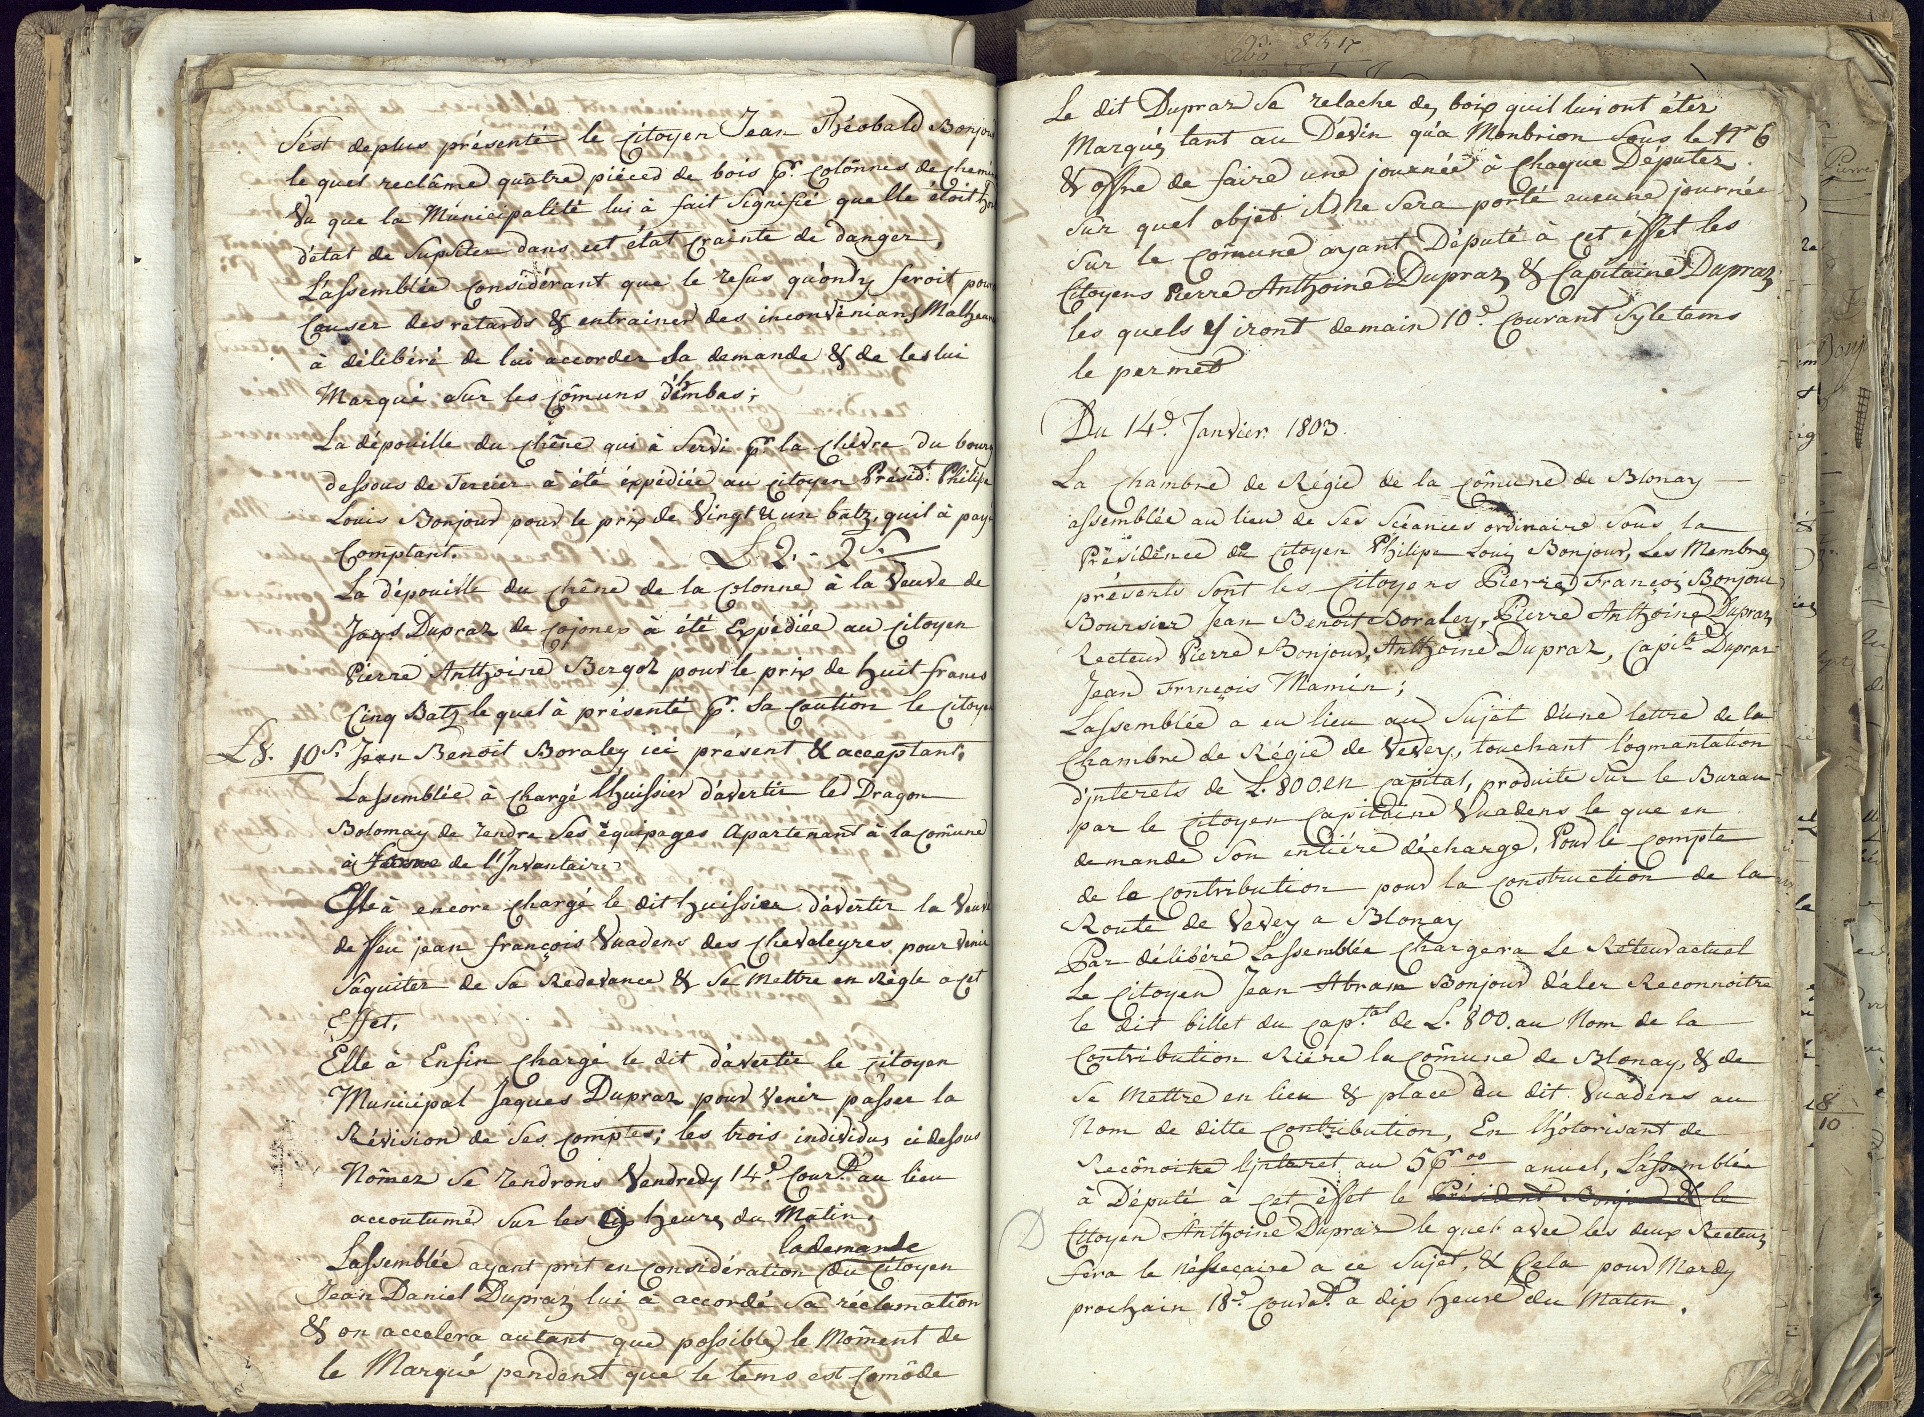 S'est deplus présenté le Citoyen Jean Théobald Bonjour
le quel reclâme quatre piéced de bois pr. Colônnes de chemi
Vu que la Municipalité lui à fait Signifié quelle étoit hor
d'état de Supsiter dans cet état Crainte de danger,
L'assemblée Considérant que le refus qu'ondy feroit pour
Causer des retards & entrainer des inconvenians Malheur
à délibéré de lui accorder sa demande & de les lui
Marqué sur les Cômuns d'embas;
La dépouille du Chêne qui à Servi pr. la Chévre du bourg
dessous de Tercier à été éxpédiée au Citoyen Présidt. Philipe
Louis Bonjour pour le prix de Vingt & un batz, quil à payé
Comptant. L 2. - 2 S.
La dépouille du Chêne de la Colonne à la Veuve de
Jaqs Dupraz de Cojonex à été Expédiée au Citoyen
Pierre Anthoine Bergoz pour le prix de huit francs
Cinq Batz le quel à présenté pr. Sa Caution le Citoyen
L 8. 10 S. Jean Benoit Boraley ici présent & acceptant,
Lassemblée à Chargé lhuissier d'avertir led Dragon
Bolomay de rendre Ses équipages Apartenant à la Comune
à de l'Invantaire
Elle à encore Chargé le dit huissier d'avertir la Veuve
de ffeu jean françois Vuadens des Chevaleyres pour venir
S'aquiter de Sa Redevance & Se Mettre en Règle a Cet
Effet,
Elle à Enfin Chargé le dit d'avertir le Citoyen
Municipal Jaques Dupraz pour Venir pâsser la
Révision de Ses Comptes; les trois individus ci dessus
Nômez Se rendrons Vendredy 14e. Courd. au lieu
accoutumé Sur les 9 heures du Matin.
la demande
Lassemblée ayant prit en Considération du Citoyen
Jean Daniel Dupraz lui à accordé Sa réclamation
& on accelera autant que possible le Môment de
le Marqué pendent que le tems est Comôde
Le dit Dupraz Se relache des boix quil lui ont étez
Marqués tant au Dévin qu'a Monbrion Sous le Nr 6
& offre de faire une journée à Chaque Députez
Sur quel objet Il Ne Sera porté aucune journée
Sur le Cômune ayant Député à Cet éffet les
Citoyens Pierre Anthoine Dupraz & Capitaine Dupraz
les quels y iront demain 10e. Courant Sy le tems
le permet
Du 14e. Janvier 1803
La Chambre de Régie de la Cômune de Blonay
assemblée au lieu de Ses Scéances ordinaire Sous la
Présidence du Citoyen Philipe Louis Bonjour, Les Membres
présents Sont les Citoyens Pierre François Bonjour
Boursier Jean Benoit Boraley, Pierre Anthoine Dupraz,
Recteur Pierre Bonjour, Anthoine Dupraz, Capit. Dupraz
Jean François Mamin;
Lassemblée a eu lieu au Sujet d'une lettre de la
Chambre de Régie de Vevey, touchant logmantation
d'interets de L. 800. en Capital, produite Sur le Bureau
par le Citoyen Capitaine Vuadens le que en
demande Son entiére décharge, Pour le Compte
de la Contribution pour la Construction de la
Route de Vevey a Blonay
Par délibéré Lassemblée Chargera Le Réteur actuel
Le Citoyen Jean Abram Bonjour d'aler Reconnoitre
le dit billet du Cap.tal de L. 800. au Nom de la
Contribution Riére la Comune de Blonay, & de
Se Mettre en lieu & place du dit Vuadens au
Nom de ditte Contribution, En lhotorisant de
Recônoitre linteret au 5 pr oo anuel, L'assemblée
à Député à Cet éffet le Président Bonjour & le
Citoyen Anthoine Dupraz le quel avec les deux Recteurs
fera le nésseçaire a ce Sujet, & Cela pour Mardy
prochain 18e. Courdt. a dix heure du Matin.